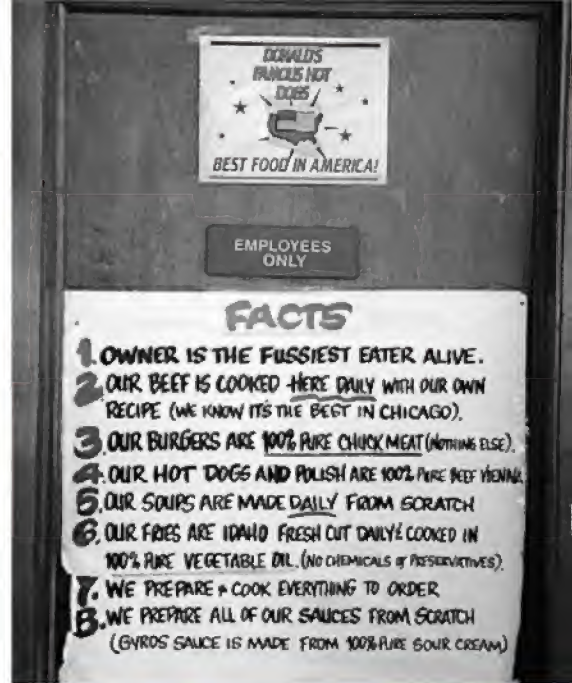 DONALD'S
FAMOUS HOT
DOGS
BEST FOOD IN AMERICA!
EMPLOYEES
ONLY
FACTS
1. OWNER IS THE FUSSIEST EATER ALIVE.
2. OUR BEEF IS COOKED HERE DAILY WITH OUR OWN
RECIPE (WE KNOW ITS THE BEST IN CHICAGO).
3. OUR BURGERS ARE 100% PURE CHUCK MEAT (NOTHING ELSE).
4. OUR HOT DOGS AND POLISH ARE 100% PURE BEEF VIENNA
5. OUR SOUPS ARE MADE DAILY FROM SCRATCH
6. OUR FRIES ARE IDAHO FRESH CUT DAILY & COOKED IN
100% PURE VEGETABLE OIL. (NO CHEMICALS or PRESERVATIVES).
7. WE PREPARE & COOK EVERYTHING TO ORDER
8. WE PREPARE ALL OF OUR SAUCES FROM SCRATCH
(GYROS SAUCE IS MADE FROM 100% PURE SOUR CREAM)